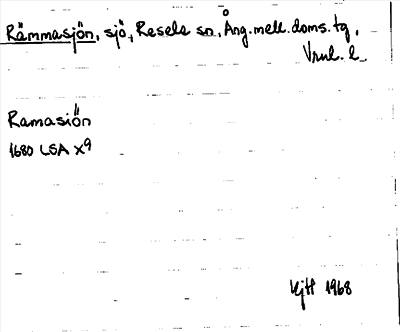 Rämmasjön, sjö, Resele sn, Ång. mell. doms. tg,
Vnl. l.
Ramasiön
1680 LSA X9
KjH 1968